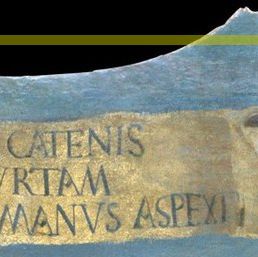 CATENIS
VRTAM
MANVS ASPEXI